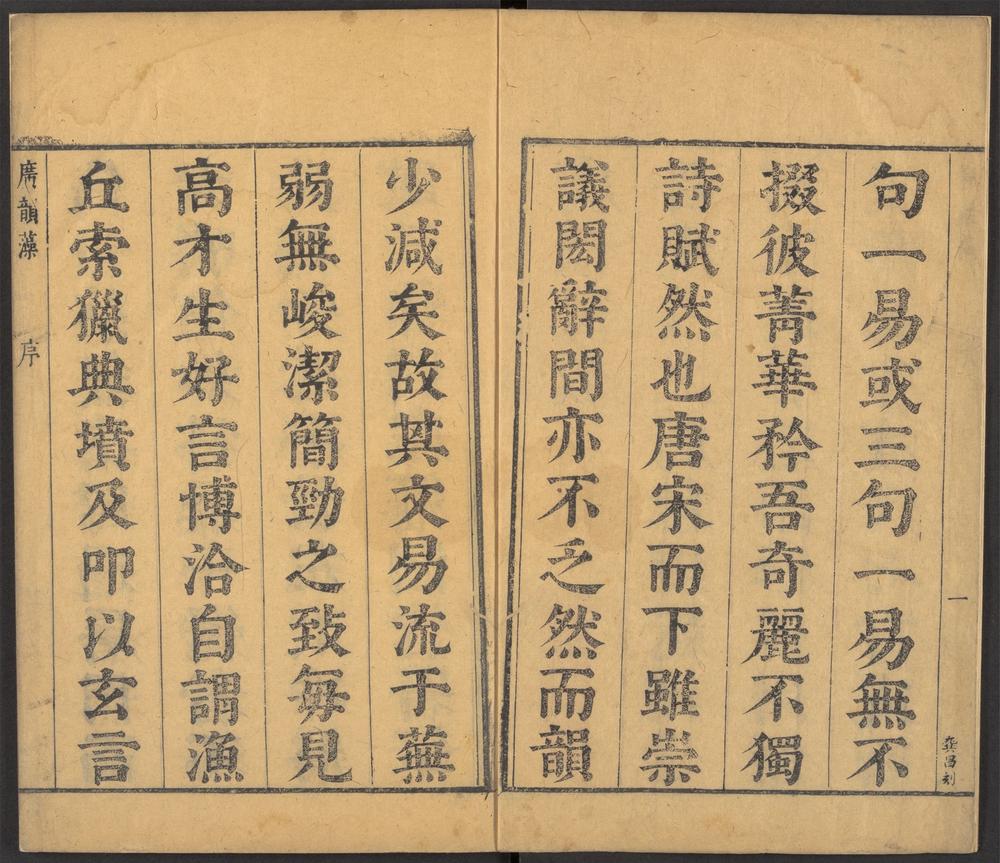 句一易或三句一易無不
掇彼菁華矜吾奇麗不獨
詩賦然也唐宋而下雖崇
議閎辭間亦不乏然而韻
一
龔昌刻
少減矣故其文易流于蕪
弱無峻潔簡勁之致每見
高才生好言博洽自謂漁
丘索獵典墳及叩以玄言
廣韻藻
序